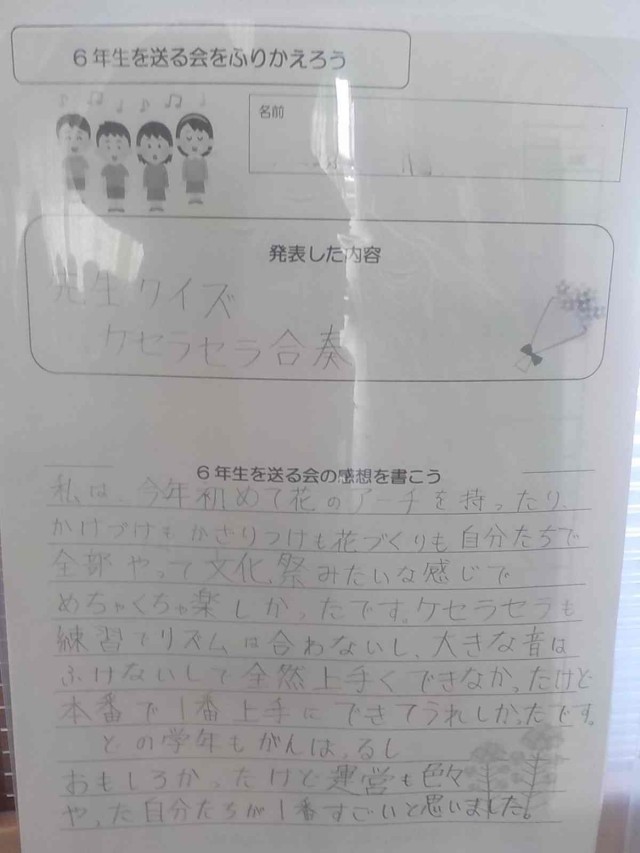 6年生を送る会をふりかえろう
名前
発表した内容
先生クイズ
ケセラセラ合奏
6年生を送る会の感想を書こう
私は、今年初めて花のアーチを持ったり、
かけづけもかざりつけも花づくりも自分たちで
全部やって文化祭みたいな感じで
めちゃくちゃ楽しかったです。ケセラセラも
練習でリズムは合わないし、大きな音は
ふけないしで全然上手くできなかったけど
本番で1番上手にできてうれしかったです。
どの学年もがんばってるし
おもしろかったけど運営も色々
やった自分たちが1番すごいと思いました。